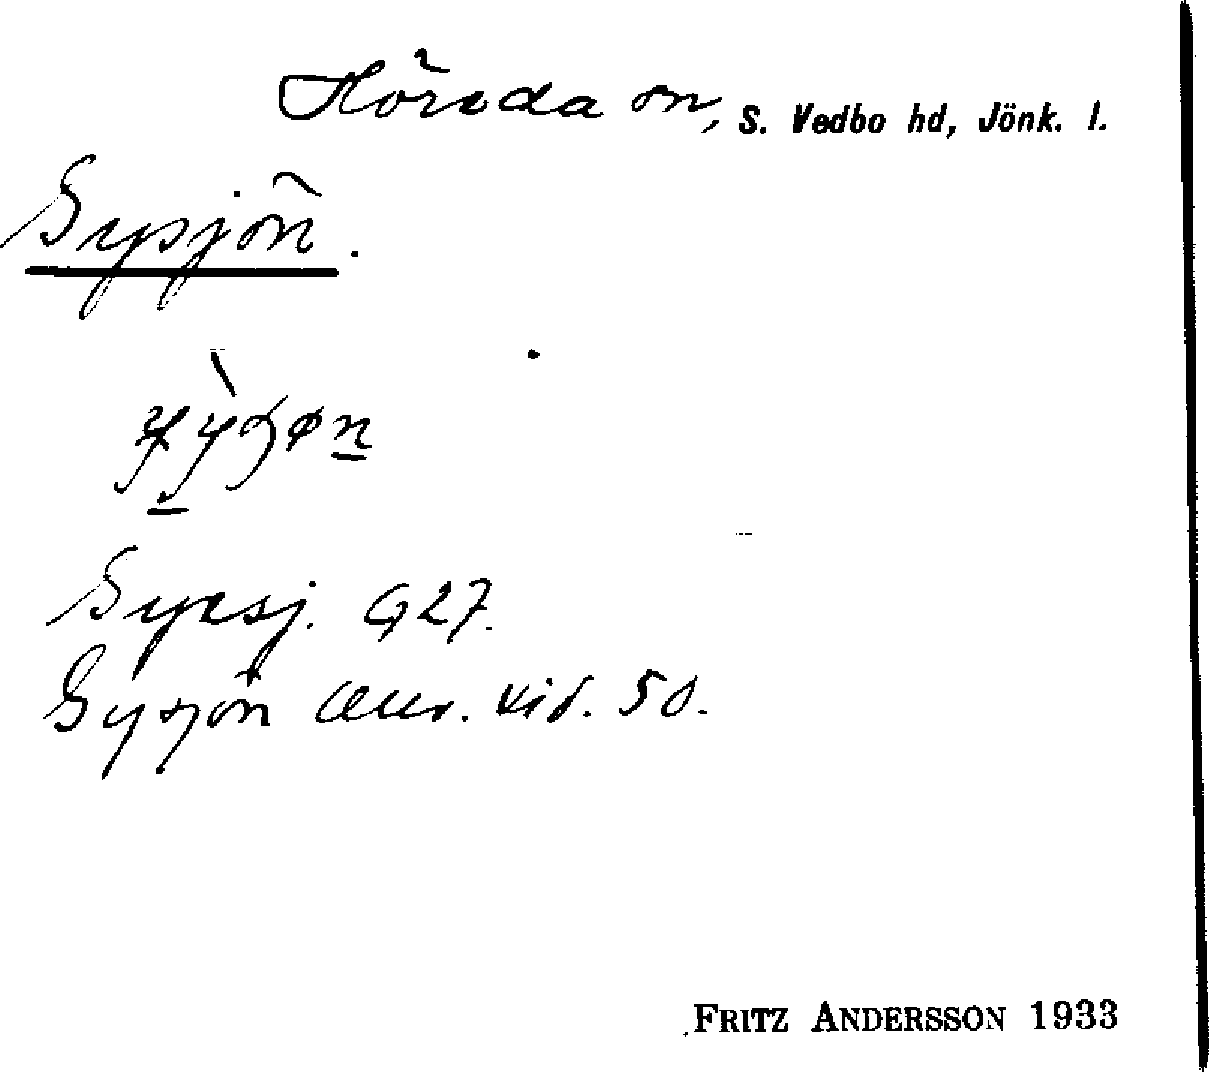 Höreda sn, S. Vedbo hd, Jönk. l.
Gysjön.
Gyesj. G27.
Gysjön Avr. vid. 50.
FRITZ ANDERSSON 1933